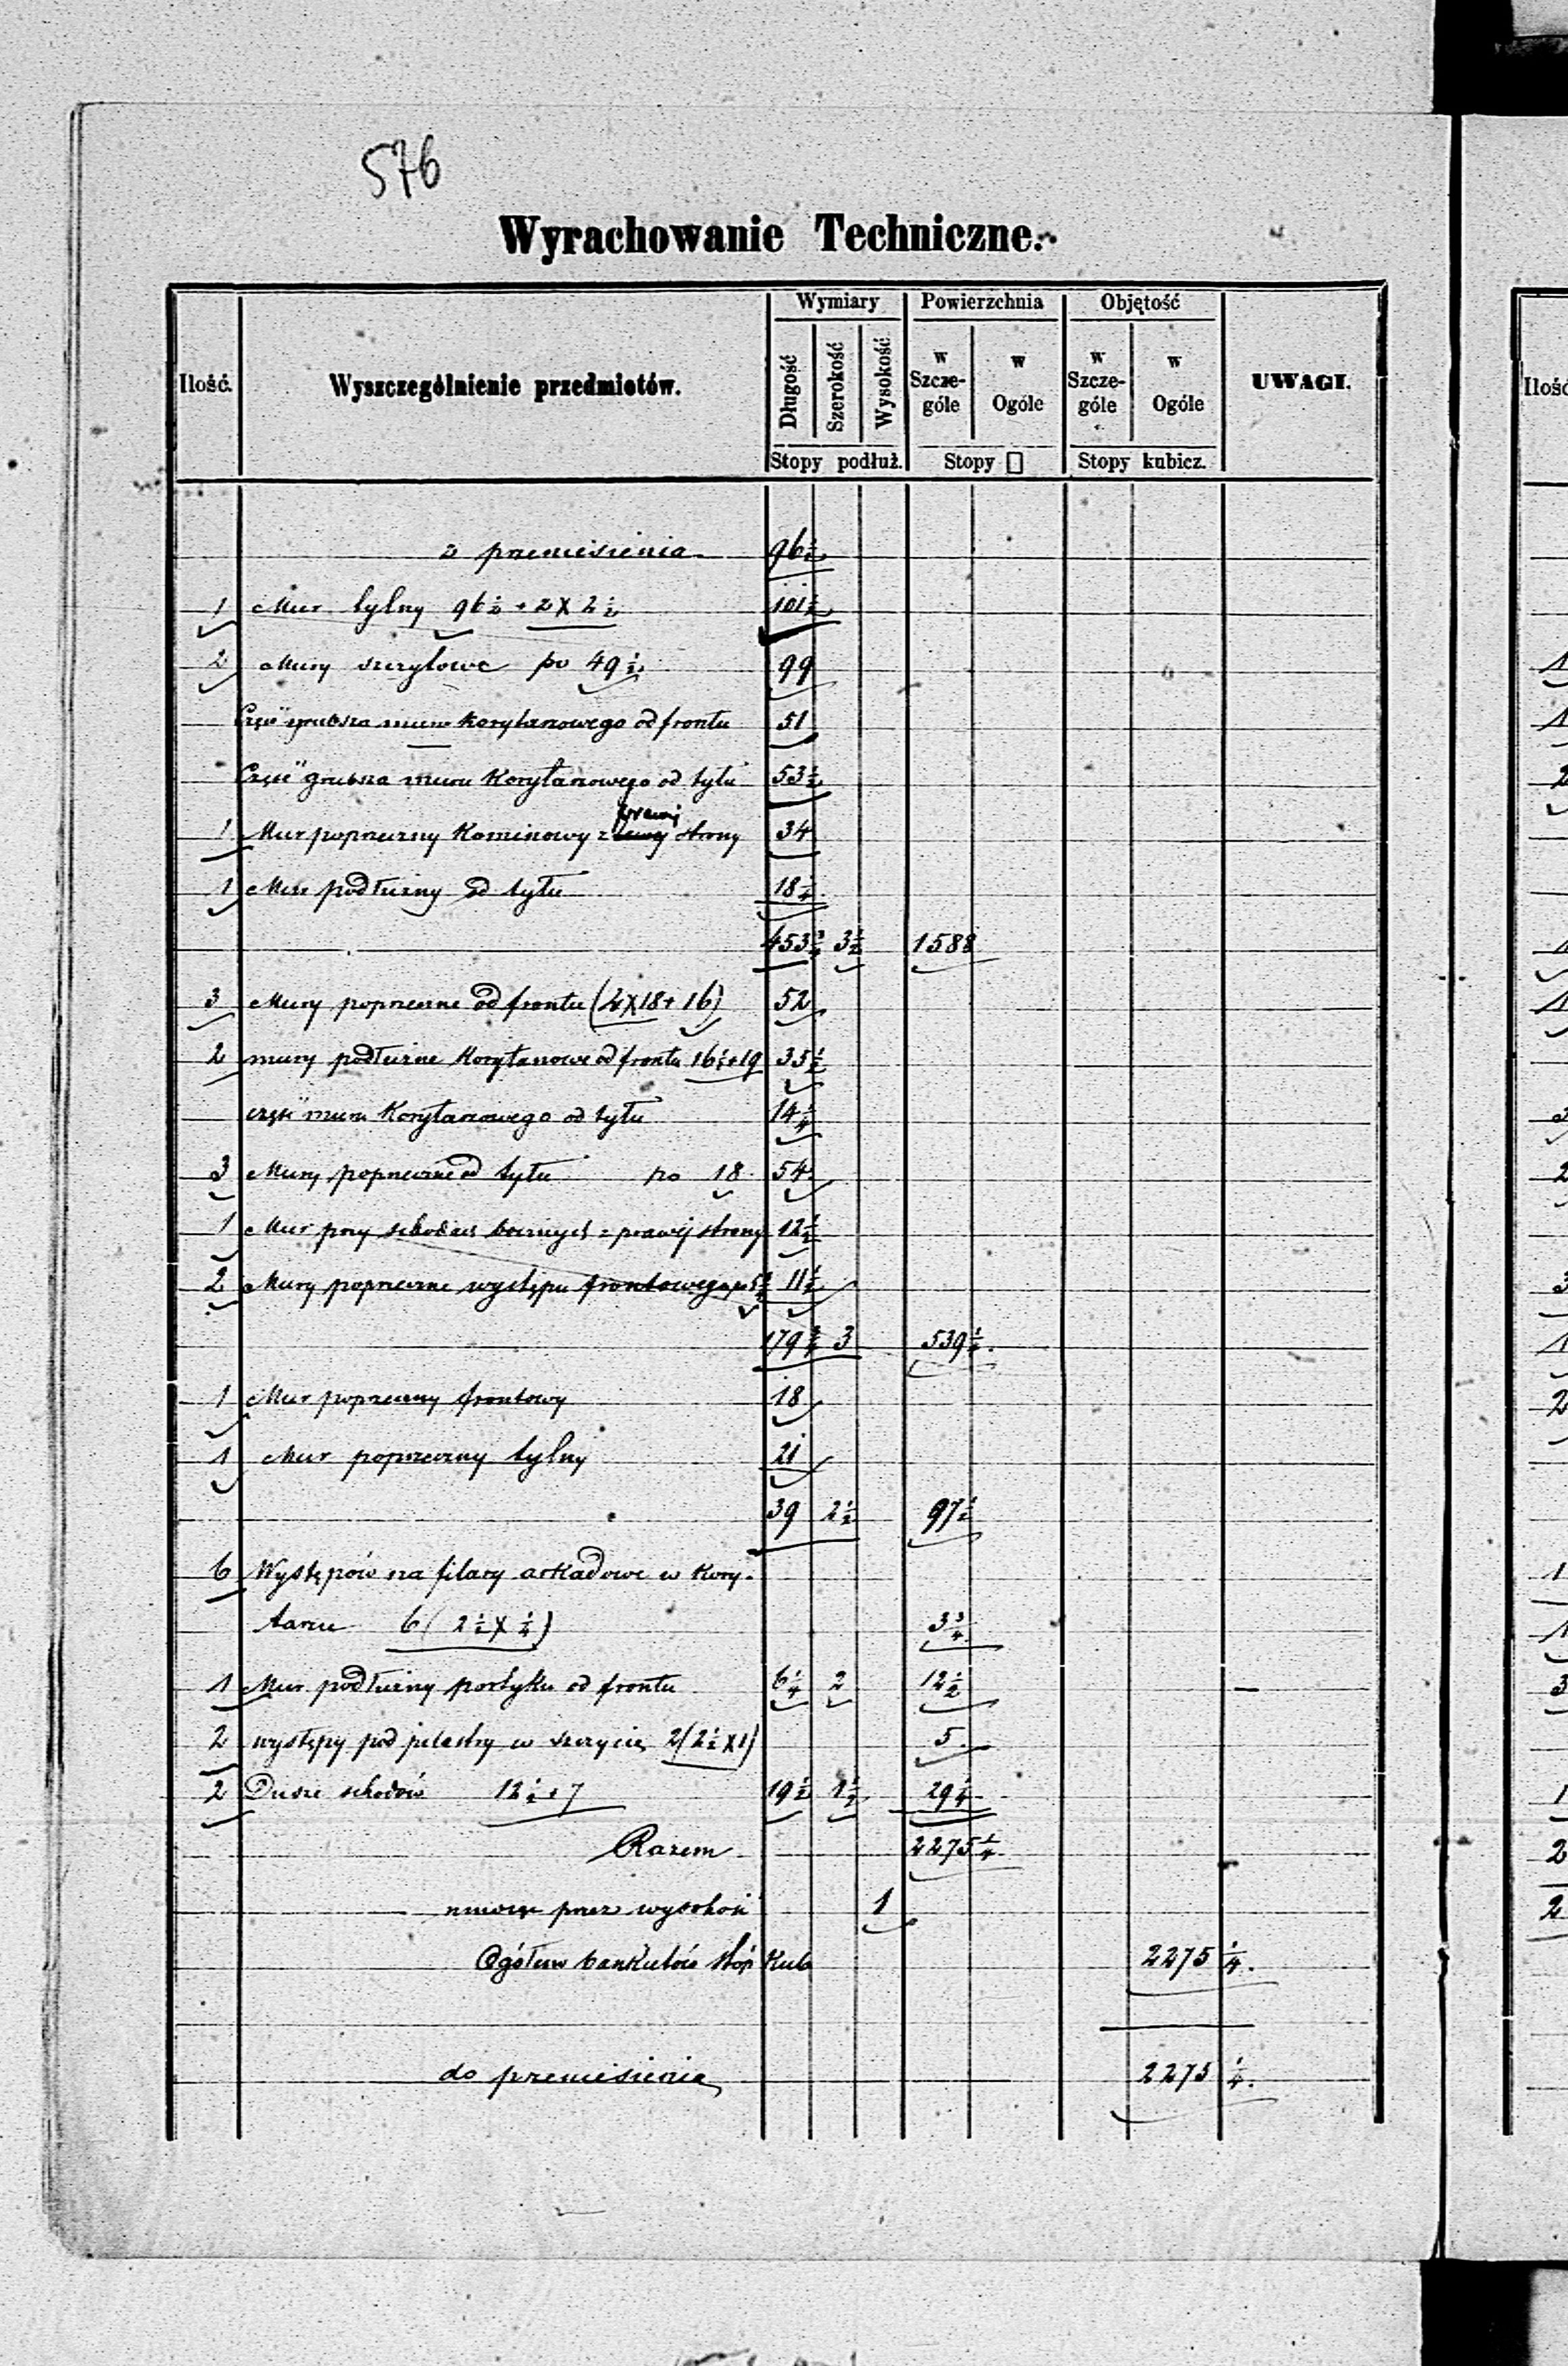 576
Wyrachowanie Techniczne.
Ilość. Wyszczególnienie przedmiotów. Wymiary Powierzchnia Objętość UWAGI.
Długość Szerokość Wysokość w Szcze-góle w Ogóle w Szcze-góle w Ogóle
Stopy podłuż. Stopy □ Stopy kubicz.
z przeniesienia 96½
1 Mur tylny 96½ + 2 X 2½ 101½
2 Mury szczytowe po 49½ 99
Część grubsza muru Korytarzowego od frontu 51
Część grubsza muru Korytarzowego od tyłu 53½
1 Mur poprzeczny Kominowy z lewej prawej strony 34
1 Mur podłużny od tyłu 18¼
453¾ 3½ 1588
3 Mury poprzeczne od frontu (2X18+16) 52
2 mury podłużne Korytarzowe od frontu 16½+19 35½
część muru Korytarzowego od tyłu 14¼
3 Mury poprzeczne od tyłu po 18 54
1 Mur przy schodach bocznych z prawej strony 12½
2 Mury poprzeczne występu frontowego po 5¾ 11½
179¾ 3 539¼
1 Mur poprzeczny frontowy 18
1 Mur poprzeczny tylny 21
39 2½ 97½
6 Występów na filary arkadowe w Kory-
tarzu 6(2½ X ¼) 3¾
1 Mur podłużny portyku od frontu 6¼ 2 12½
2 występy pod pilastry w szczycie 2(2½X1) 5
2 Dusze schodów 12½+7 19½ 1½ 29¼
Razem 2275¼
mnożąc przez wysokość 1
Ogółem bankietów stóp Kub 2275¼.
do przeniesienia 2275¼.